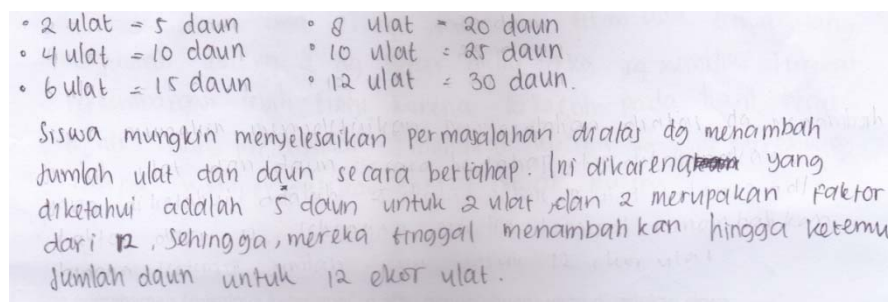 • 2 ulat = 5 daun • 8 ulat = 20 daun
• 4 ulat = 10 daun • 10 ulat = 25 daun
• 6 ulat = 15 daun • 12 ulat = 30 daun.
Siswa mungkin menyelesaikan permasalahan diatas dg menambah
jumlah ulat dan daun secara bertahap. Ini dikarena yang
diketahui adalah 5 daun untuk 2 ulat, dan 2 merupakan faktor
dari 12. Sehingga, mereka tinggal menambahkan hingga ketemu
jumlah daun untuk 12 ekor ulat.